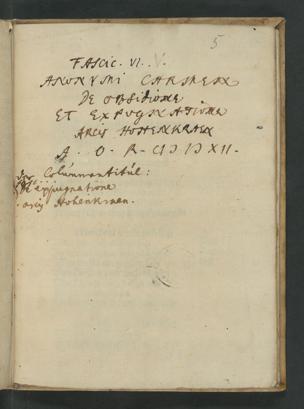 5
FASCIC. VI. V.
ANONYMI CARMEN
DE OBSIDIONE
ET EXPUGNATIONE
ARCIS HOHENKRAEN
A. O. R. CIƆ IƆ XII.
Columnentitul:
De oppugnatione
arcis Hohenkraen.